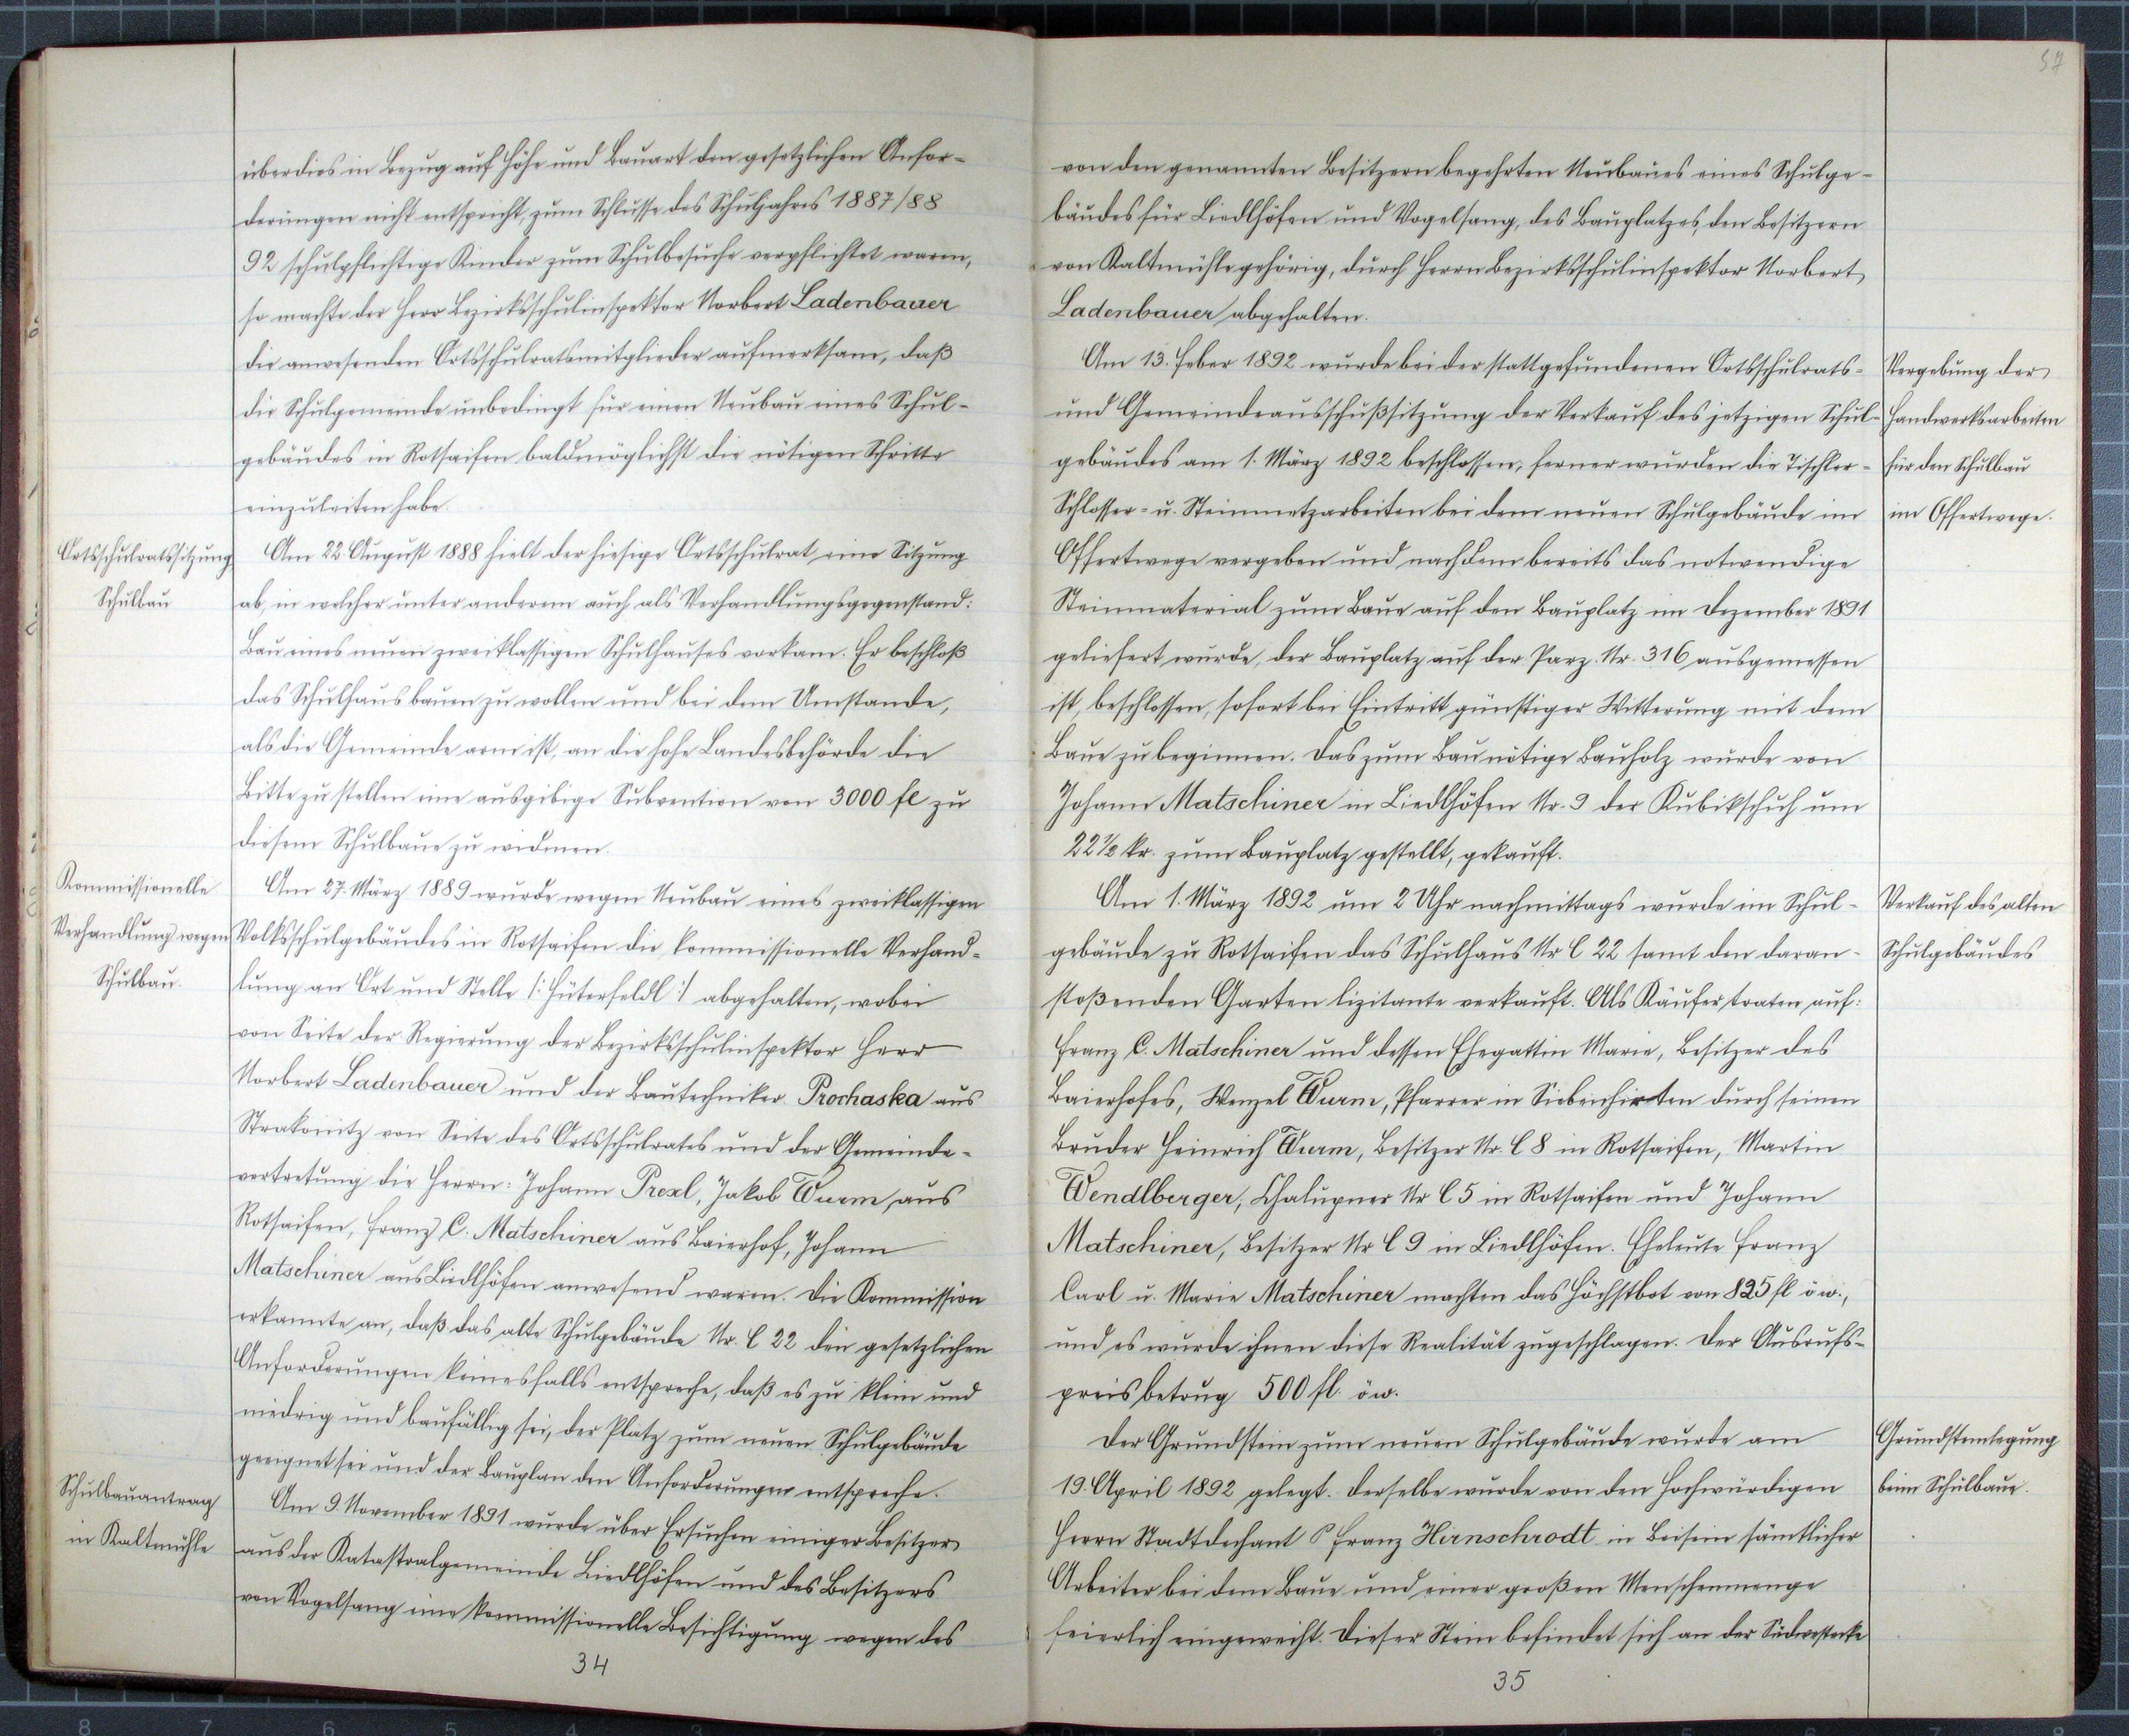 überdies in Bezug auf Höhe und Bauart den gesetzlichen Anfor-
derungen nicht entspricht, zum Schlusse des Schuljahres 1887/88
92 schulpflichtige Kinder zum Schulbesuche verpflichtet waren,
so machte der Herr Bezirksschulinspektor Norbert Ladenbauer
die anwesenden Ortsschulratsmitglieder aufmerksam, daß
die Schulgemeinde unbedingt für einen Neubau eines Schul-
gebäudes in Rotsaifen baldmöglichst die nötigen Schritte
einzuleiten habe.
Ortsschulratssitzung
Schulbau
Am 22. August 1888 hielt der hiesige Ortsschulrat eine Sitzung
ab, in welcher unter anderem auch als Verhandlungsgegenstand:
Bau eines neuen zweiklassigen Schulhauses vorkam. Er beschloß
das Schulhaus bauen zu wollen und bei dem Umstande,
als die Gemeinde arm ist, an die hohe Landesbehörde die
Bitte zu stellen eine ausgibige Subvention von 3000 fl zu
diesem Schulbaue zu widmen.
Kommissionelle
Verhandlung wegen
Schulbau.
Am 27. März 1889 wurde wegen Neubau eines zweiklassigen
Volksschulgebäudes in Rotsaifen die kommissionelle Verhand-
lung an Ort und Stelle /: Hüterfeldl :/ abgehalten, wobei
von Seite der Regierung der Bezirksschulinspektor Herr
Norbert Ladenbauer und der Bautechniker Prochaska aus
Strakonitz von Seite des Ortsschulrates und der Gemeinde-
vertretung die Herrn: Johann Prexl, Jakob Wurm aus
Rotsaifen, Franz C. Matschiner aus Baierhof, Johann
Matschiner aus Liedlhöfen anwesend waren. Die Kommission
erkannte an, daß das alte Schulgebäude Nr. C 22 den gesetzlichen
Anforderungen keinesfalls entspreche, daß es zu klein und
niedrig und baufällig sei, der Platz zum neuen Schulgebäude
geeignet sei und der Bauplan den Anforderungen entspreche.
Schulbauantrag
in Kaltmühle
Am 9. November 1891 wurde über Ersuchen einiger Besitzer
aus der Katastralgemeinde Liedlhöfen und des Besitzers
von Vogelsang eine kommissionelle Besichtigung wegen des
34
57
von den genannten Besitzern begehrten Neubaues eines Schulge-
bäudes für Liedlhöfen und Vogelsang, des Bauplatzes, den Besitzern
von Kaltmühle gehörig, durch Herrn Bezirksschulinspektor Norbert
Ladenbauer abgehalten.
Am 13. Feber 1892 wurde bei der stattgefundenen Ortsschulrats-
und Gemeindeausschußsitzung der Verkauf des jetzigen Schul-
gebäudes am 1. März 1892 beschlossen, ferner wurden die Tischler-
Schlosser- u. Steinmetzarbeiten bei dem neuen Schulgebäude im
Offertwege vergeben und nachdem bereits das notwendige
Steinmaterial zum Baue auf den Bauplatz im Dezember 1891
geliefert wurde, der Bauplatz auf der Parz. Nr. 316 ausgemessen
ist, beschlossen, sofort bei Eintritt günstiger Witterung mit dem
Baue zu beginnen. Das zum Bau nötige Bauholz wurde von
Johann Matschiner in Liedlhöfen Nr. 9 der Kubikschuh um
22½ kr. zum Bauplatz gestellt, gekauft.
Vergebung der
Handwerksarbeiten
für den Schulbau
im Offertwege.
Am 1. März 1892 um 2 Uhr nachmittags wurde im Schul-
gebäude zu Rotsaifen das Schulhaus Nr C 22 samt den daran-
stoßenden Garten lizitante verkauft. Als Käufer traten auf:
Franz C. Matschiner und dessen Ehegattin Marie, Besitzer des
Baierhofes, Wenzel Wurm, Pfarrer in Siebenhirten durch seinen
Bruder Heinrich Wurm, Besitzer Nr. C 8 in Rotsaifen, Martin
Wendlberger, Chalupner Nr C 5 in Rotsaifen und Johann
Matschiner, Besitzer Nr C 9 in Liedlhöfen. Eheleute Franz
Carl u. Marie Matschiner machten das Höchstbot von 825 fl öw.,
und es wurde ihnen diese Realität zugeschlagen. Der Ausrufs-
preis betrug 500 fl. öw.
Verkauf des alten
Schulgebäudes
Der Grundstein zum neuen Schulgebäude wurde am
19. April 1892 gelegt. Derselbe wurde von den Hochwürdigen
Herrn Stadtdechant P Franz Hirnschrodt in Beisein sämtlicher
Arbeiter bei dem Baue und einer großen Menschenmenge
feierlich eingeweiht. Dieser Stein befindet sich an der Südwestecke
Grundsteinlegung
beim Schulbaue.
35
8 7 6 5 4 3